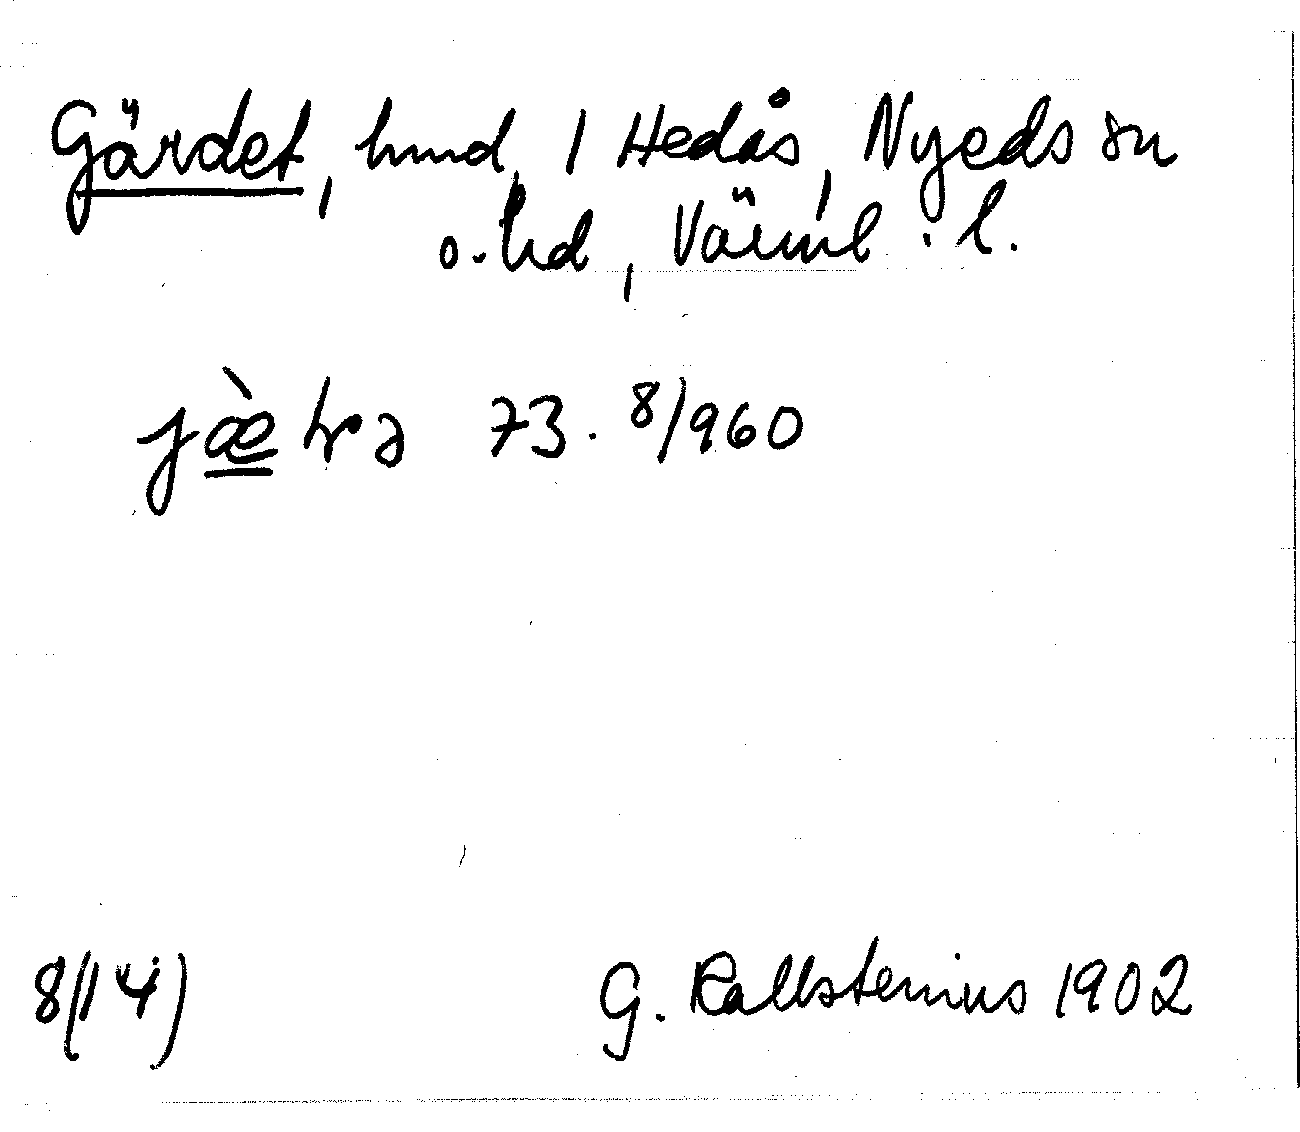 Gärdet, hmd, 1 Hedås, Nyeds sn
o. hd, Värml. l.
jæ̀trə 73. 8/960
8(14)
G. Kallstenius 1902